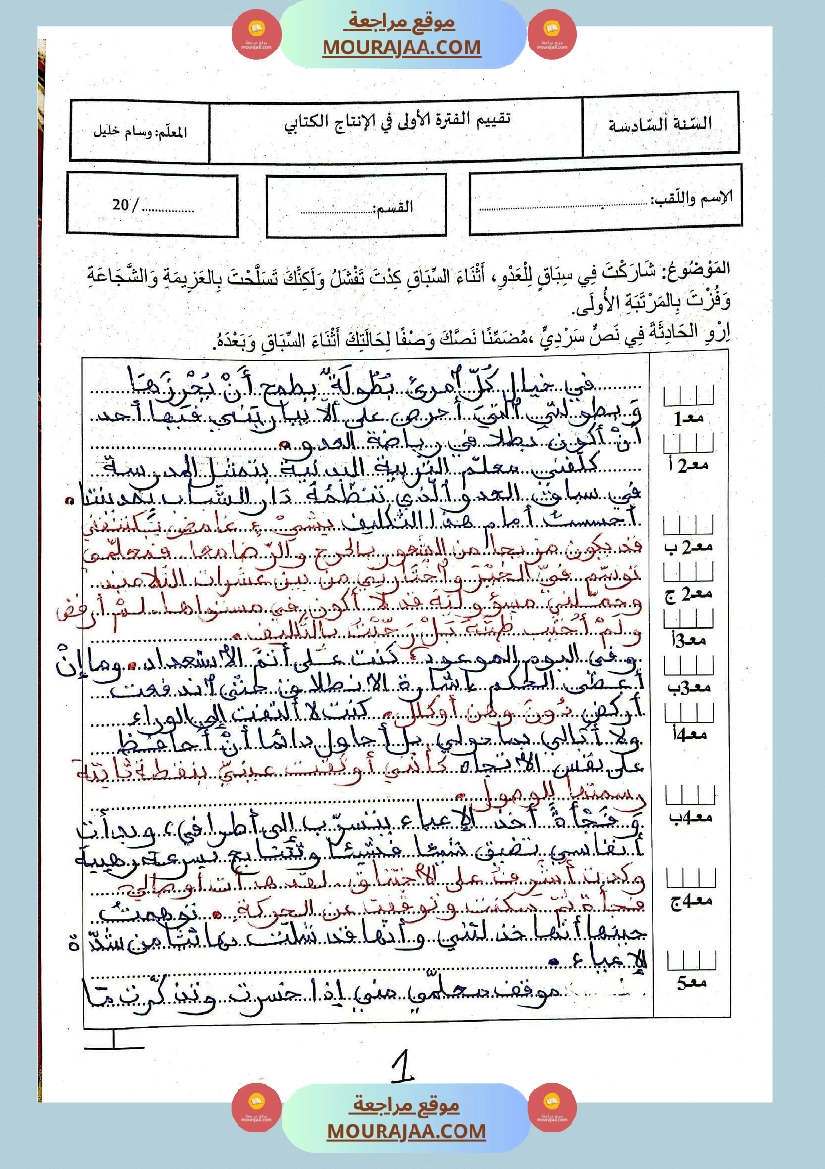 موقع مراجعة
MOURAJAA.COM
السّنة السّادسة
تقييم الفترة الأولى في الإنتاج الكتابي
المعلّم: وسام خليل
الاسم واللّقب: ........................
القسم: ...............
............... / 20
المَوْضُوعُ: شَارَكْتَ فِي سِبَاقٍ لِلْعَدْوِ، أَثْنَاءَ السِّبَاقِ كِدْتَ تَفْشَلُ وَلَكِنَّكَ تَسَلَّحْتَ بِالعَزِيمَةِ وَالشَّجَاعَةِ
وَفُزْتَ بِالمَرْتَبَةِ الأُولَى.
اِرْوِ الحَادِثَةَ فِي نَصٍّ سَرْدِيٍّ ،مُضَمِّنًا نَصَّكَ وَصْفًا لِحَالَتِكَ أَثْنَاءَ السِّبَاقِ وَبَعْدَهُ.
في خيال كُلّ امرئ بُطُولَة يطمح أَنْ يُحْرِزَهَا
وَبطولتي الّتي أحرص على ألا يباريني فيها أحد
أَنْ أكون بطلا في رياضة العدو.
كلّفني معلّم التربية البدنية بتمثيل المدرسة
في سباق العدو الّذي تنظّمُهُ دَار الشّباب بمدينتنا.
أحسست أمام هذا التكليف بشيْء غامض يكتنفني
قد يكون مزيجا من الشعور بالحرج والرّضا معا فمعلّمي
توسّم فيّ الخَيْرَ واخْتَارني من بين عشرات التلاميذ
وحمّلني مسؤوليّة قد لا أكون في مستواها. لمْ أرفض
ولَمْ أُخَيِّب ظَنَّهُ بَلْ رَحَّبْتُ بالتّكليف.
وفي اليوم الموعود، كنت على أتمّ الاستعداد. وما إنْ
أعطى الحكم إشارة الانطلاق حتّى اندفعت
أركض دُونَ وهن أو كلل. كنت لا ألتفت إلى الوراء
ولا أبالي بما حولي بل أحاول دائما أنْ أحافظ
على نفس الاتجاه كأنّني أوثقت عينيّ بنقطة ثابتة
رسمتها للوصول.
وَفَجْأَةً أخذ الإعياء يتسرّب إلى أطرافي، وبدأت
أنفاسي تضيق شيئا فشيئا وتَتَتابع بسرعة رهيبة
وكدت أُشْرِفُ على الاختناق. لقد هدأت أوصالي
فجأة ثمّ سكنت وتوقّفت عن الحركة. توهمتُ
حينها أنّها خذلتني وأنّها قد شلّت بتاتا من شدّة
الإعياء.
موقف معلّمي منّي إذا خسرت وتذكّرت مَا
معـ1
معـ2 أ
معـ2 ب
معـ2 ج
معـ3أ
معـ3ب
معـ4أ
معـ4ب
معـ4ج
معـ5
1
موقع مراجعة
MOURAJAA.COM